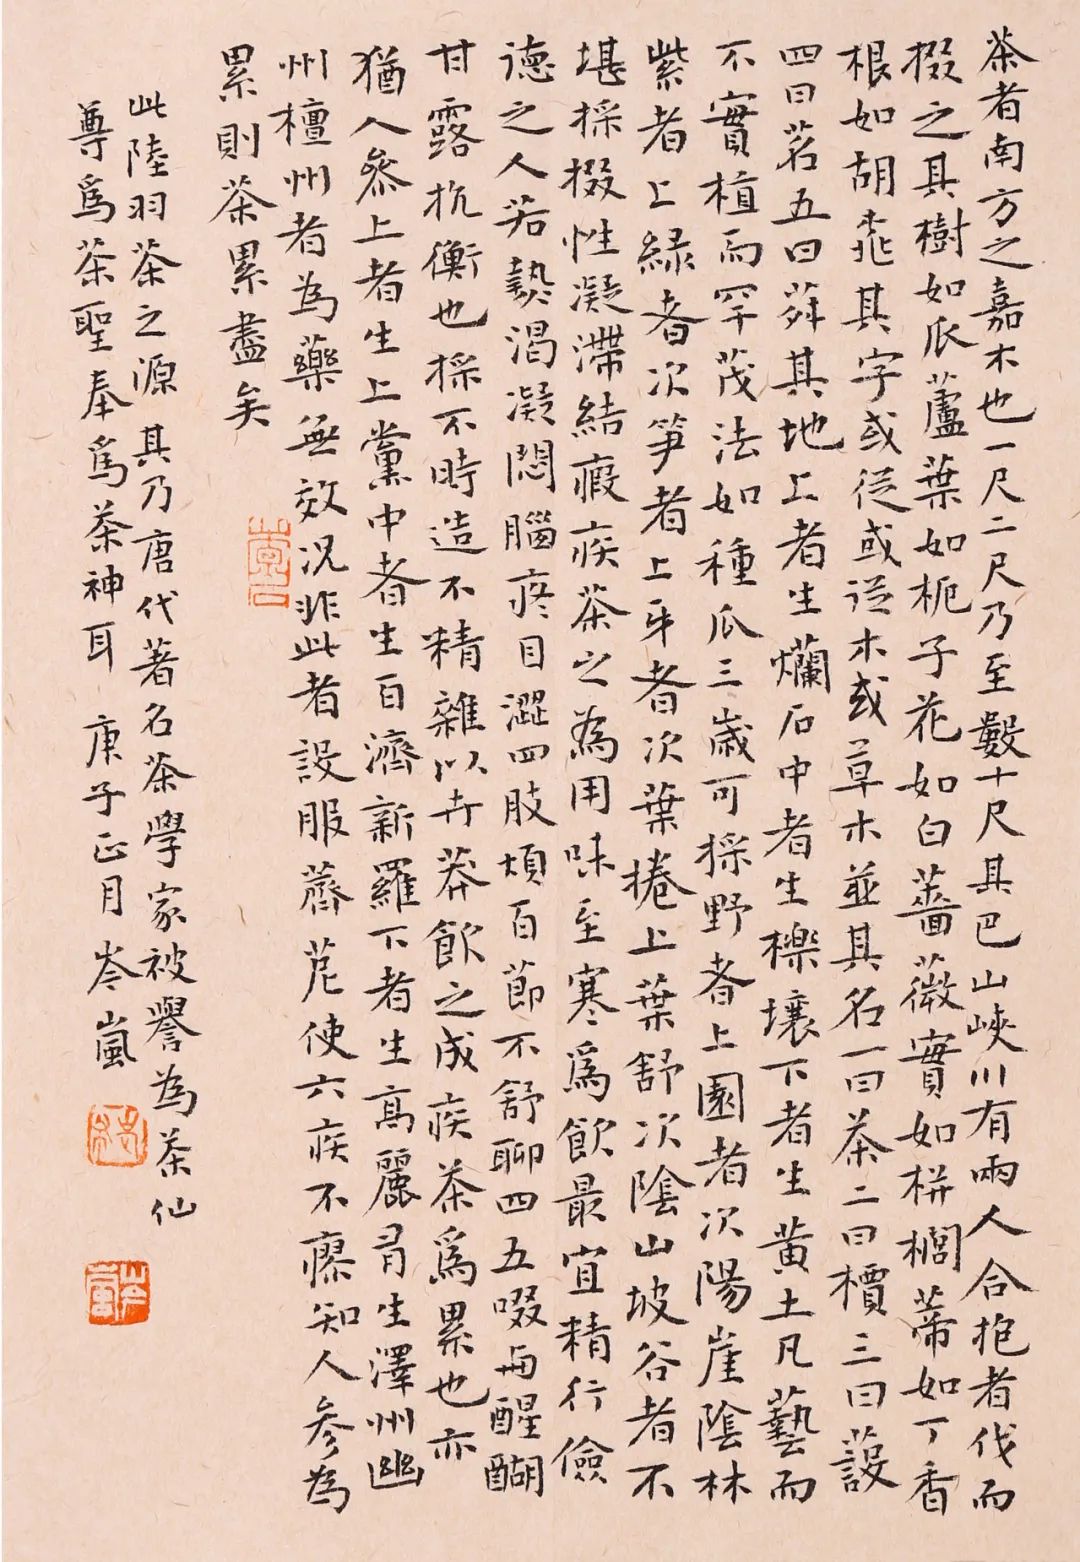 茶者南方之嘉木也一尺二尺乃至數十尺其巴山峽川有兩人合抱者伐而
掇之其樹如瓜蘆葉如栀子花如白薔薇實如栟櫚蒂如丁香
根如胡桃其字或從或從木或草木並其名一曰茶二曰檟三曰蔎
四曰茗五曰荈其地上者生爛石中者生櫟壤下者生黃土凡藝而
不實植而罕茂法如種瓜三歲可採野者上園者次陽崖陰林
紫者上綠者次笋者上牙者次葉捲上葉舒次陰山坡谷者不
堪採掇性凝滯結瘕疾茶之為用味至寒爲飲最宜精行儉
德之人若熱渴凝悶腦疼目澀四肢煩百節不舒聊四五啜与醒醐
甘露抗衡也採不時造不精雜以卉莽飲之成疾茶爲累也亦
猶人參上者生上黨中者生百濟新羅下者生高麗有生澤州幽
州檀州者為藥無效況非此者設服薺苨使六疾不瘳知人參為
累則茶累盡矣
此陸羽茶之源其乃唐代著名茶學家被譽為茶仙
尊爲茶聖奉爲茶神耳 庚子正月岑嵐